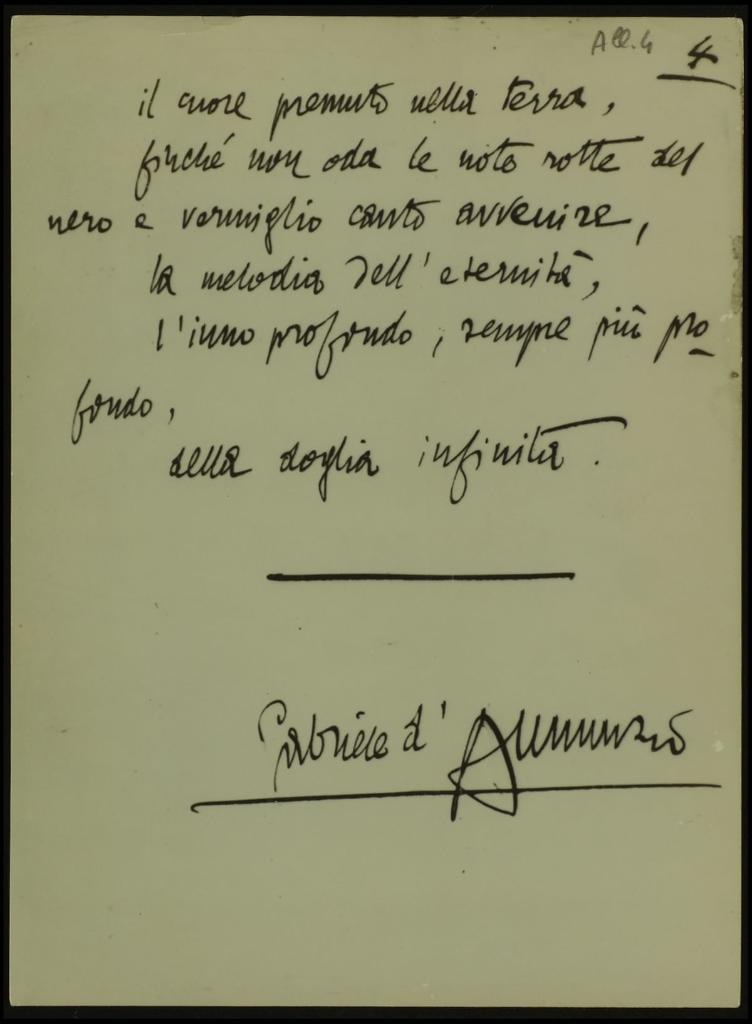 All. 4
4
il cuore premuto nella terra,
finché non oda le note rotte del
nero e vermiglio canto avvenire,
la melodia dell'eternità,
l'inno profondo, sempre più pro
fondo,
della doglia infinita.
Gabriele d'Annunzio